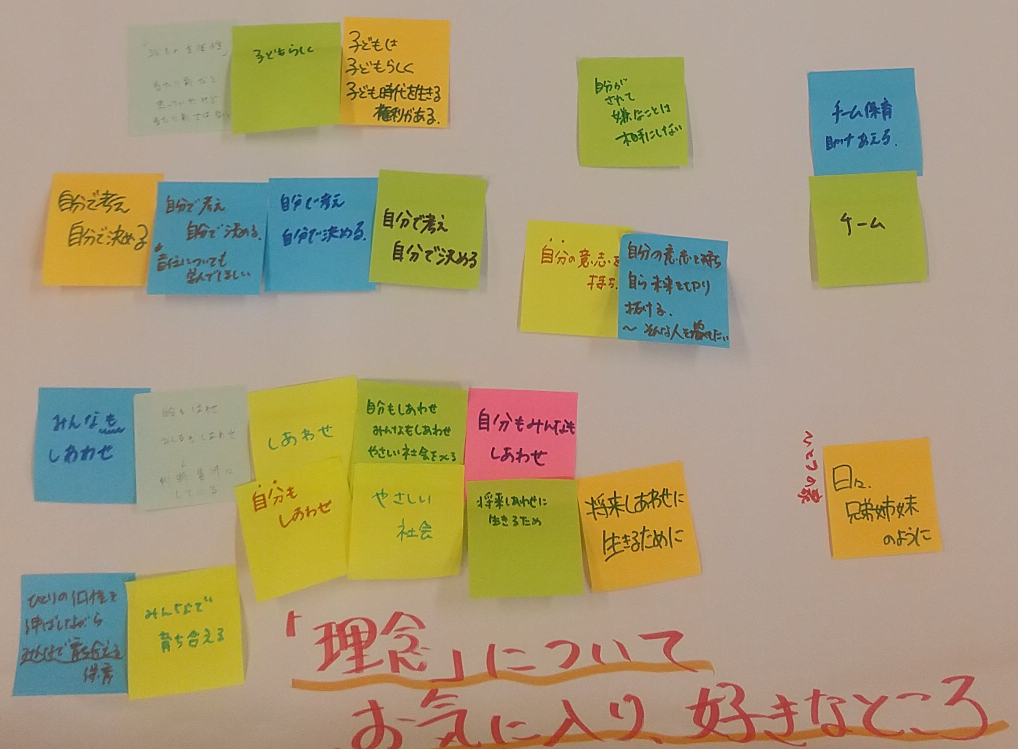 子どもらしく
子どもは
子どもらしく
子ども時代を生きる
権利がある。
自分が
されて
嫌なことは
相手にしない
チーム保育
助けあえる。
チーム
自分で考え
自分で決める
自分で考え
自分で決める。
責任についても
学んでほしい
自分で考え
自分で決める。
自分で考え
自分で決める
自分の意志を
持ち
自分の意志を持ち
自ら未来を切り
拓ける。
〜そんな人を増やしたい
みんなも
しあわせ
しあわせ
自分もしあわせ
みんなもしあわせ
やさしい社会をつくる
自分もみんなも
しあわせ
自分も
しあわせ
やさしい
社会
将来しあわせに
生きるため
将来しあわせに
生きるために
ひとつの家
兄弟姉妹
のように
ひとりの個性を
伸ばしながら
みんなで育ち合える
保育
みんなで
育ち合える
「理念」について
お気に入り、好きなところ